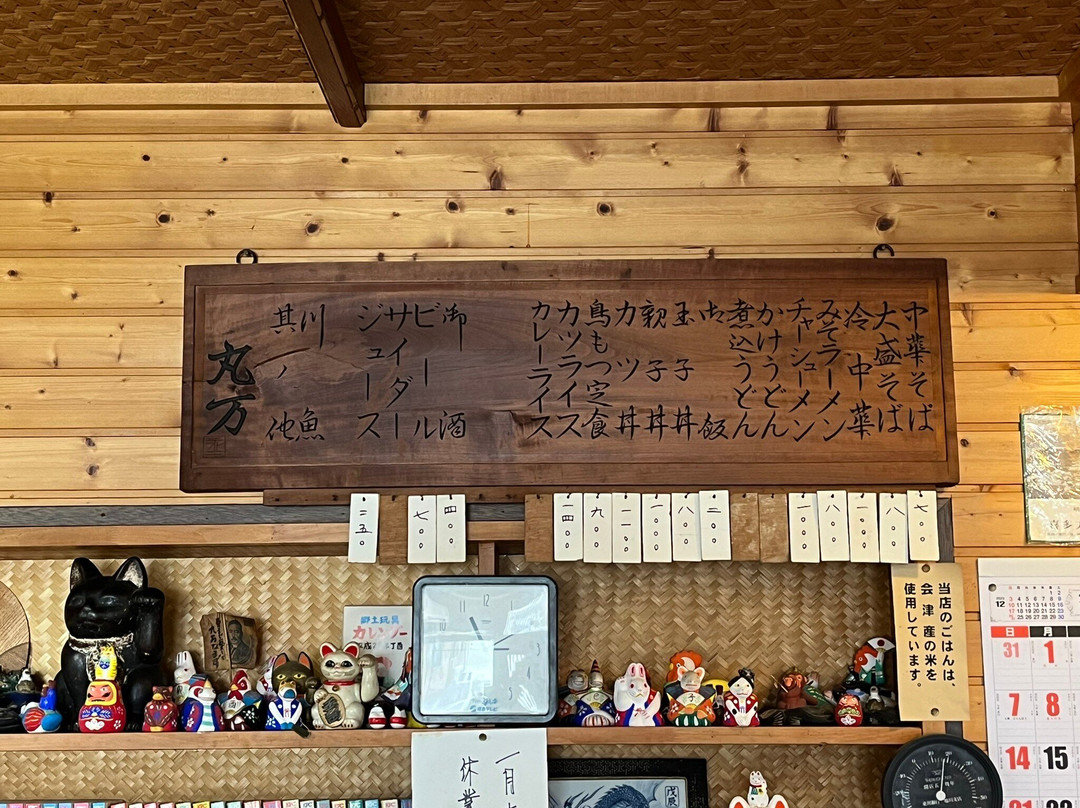 中華そば
大盛そば
冷中華
みそラーメン
チャシューメン
かけうどん
煮込うどん
御飯
玉子丼
親子丼
カツ丼
鳥もつ定食
カツライス
カレーライス
御酒
ビール
サイダー
ジュース
川魚
其ノ他
丸万
七〇〇
八〇〇
一〇〇〇
八〇〇
一〇〇〇
二〇〇
八〇〇
一〇〇〇
一一〇〇
九〇〇
一四〇〇
四〇〇
七〇〇
二五〇
当店のごはんは、
会津産の米を
使用しています。
郷土玩具
カレンダー
一月
休業
戊辰
12
日 月
31 1
7 8
14 15